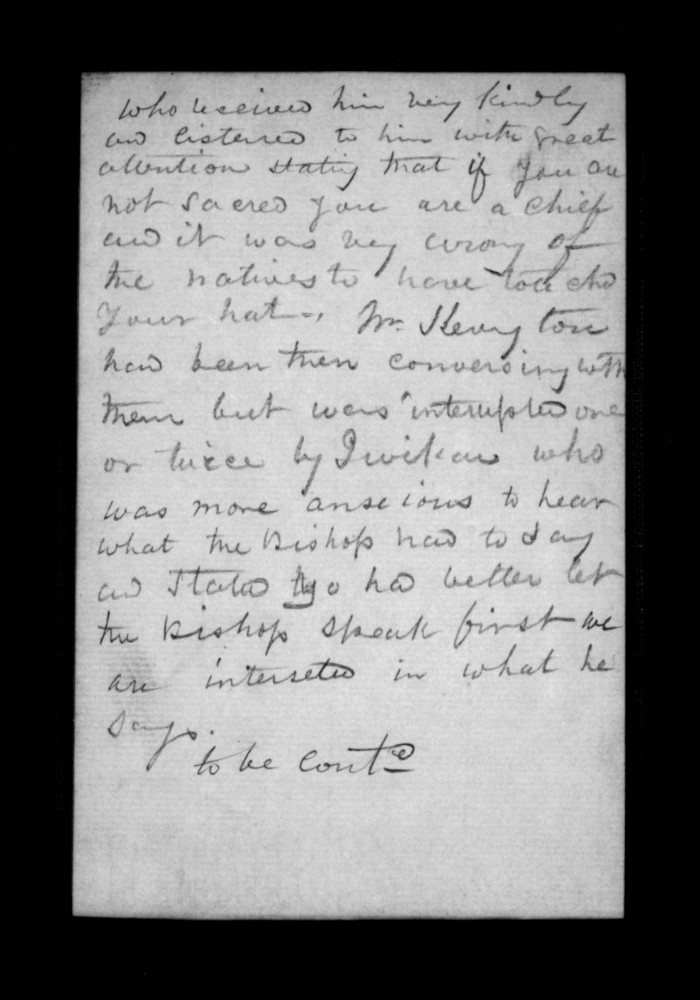 who received him very kindly
and listened to him with great
attention stating that if you are
not sacred you are a chief
and it was very wrong of
the natives to have touched
your hat -
had been then conversing with
them but was interrupted one
or twice by who
was more anscious to hear
what the Bishop had to say
and stated had better let
the Bishop speak first we
are interseted in what he
says.
to be Contd